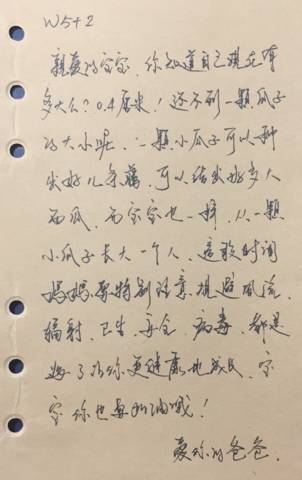 W5+2
亲爱的宝宝，你知道自己现在有
多大么？0.4厘米！还不到一颗瓜子
的大小呢，一颗小瓜子可以种
出好几条藤，可以结出好多大
西瓜，而宝宝也一样，从一颗
小瓜子长大一个人，这段时间
妈妈要特别注意规避风流，
辐射，卫生，安全，病毒，都是
为了让你更健康地成长，宝
宝你也要加油哦！
爱你的爸爸